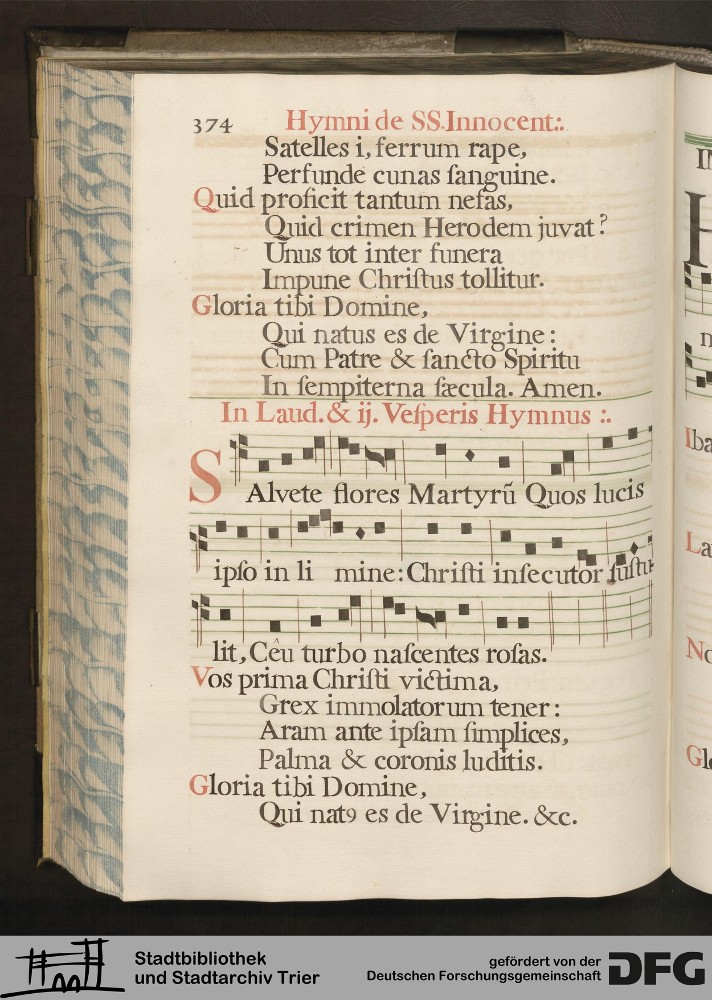 374 Hymni de SS. Innocent:.
Satelles i, ferrum rape,
Perfunde cunas ſanguine.
Quid proficit tantum nefas,
Quid crimen Herodem juvat?
Unus tot inter funera
Impune Chriſtus tollitur.
Gloria tibi Domine,
Qui natus es de Virgine:
Cum Patre & ſancto Spiritu
In ſempiterna ſæcula. Amen.
In Laud. & ij. Veſperis Hymnus :.
SAlvete flores Martyrū Quos lucis
ipſo in li mine: Chriſti inſecutor ſuſtu-
lit, Ceu turbo naſcentes roſas.
Vos prima Chriſti victima,
Grex immolatorum tener:
Aram ante ipſam ſimplices,
Palma & coronis luditis.
Gloria tibi Domine,
Qui natꝯ es de Virgine. &c.
IN
H
n
Iba
La
No
Glo
Stadtbibliothek
und Stadtarchiv Trier
gefördert von der
Deutschen Forschungsgemeinschaft
DFG